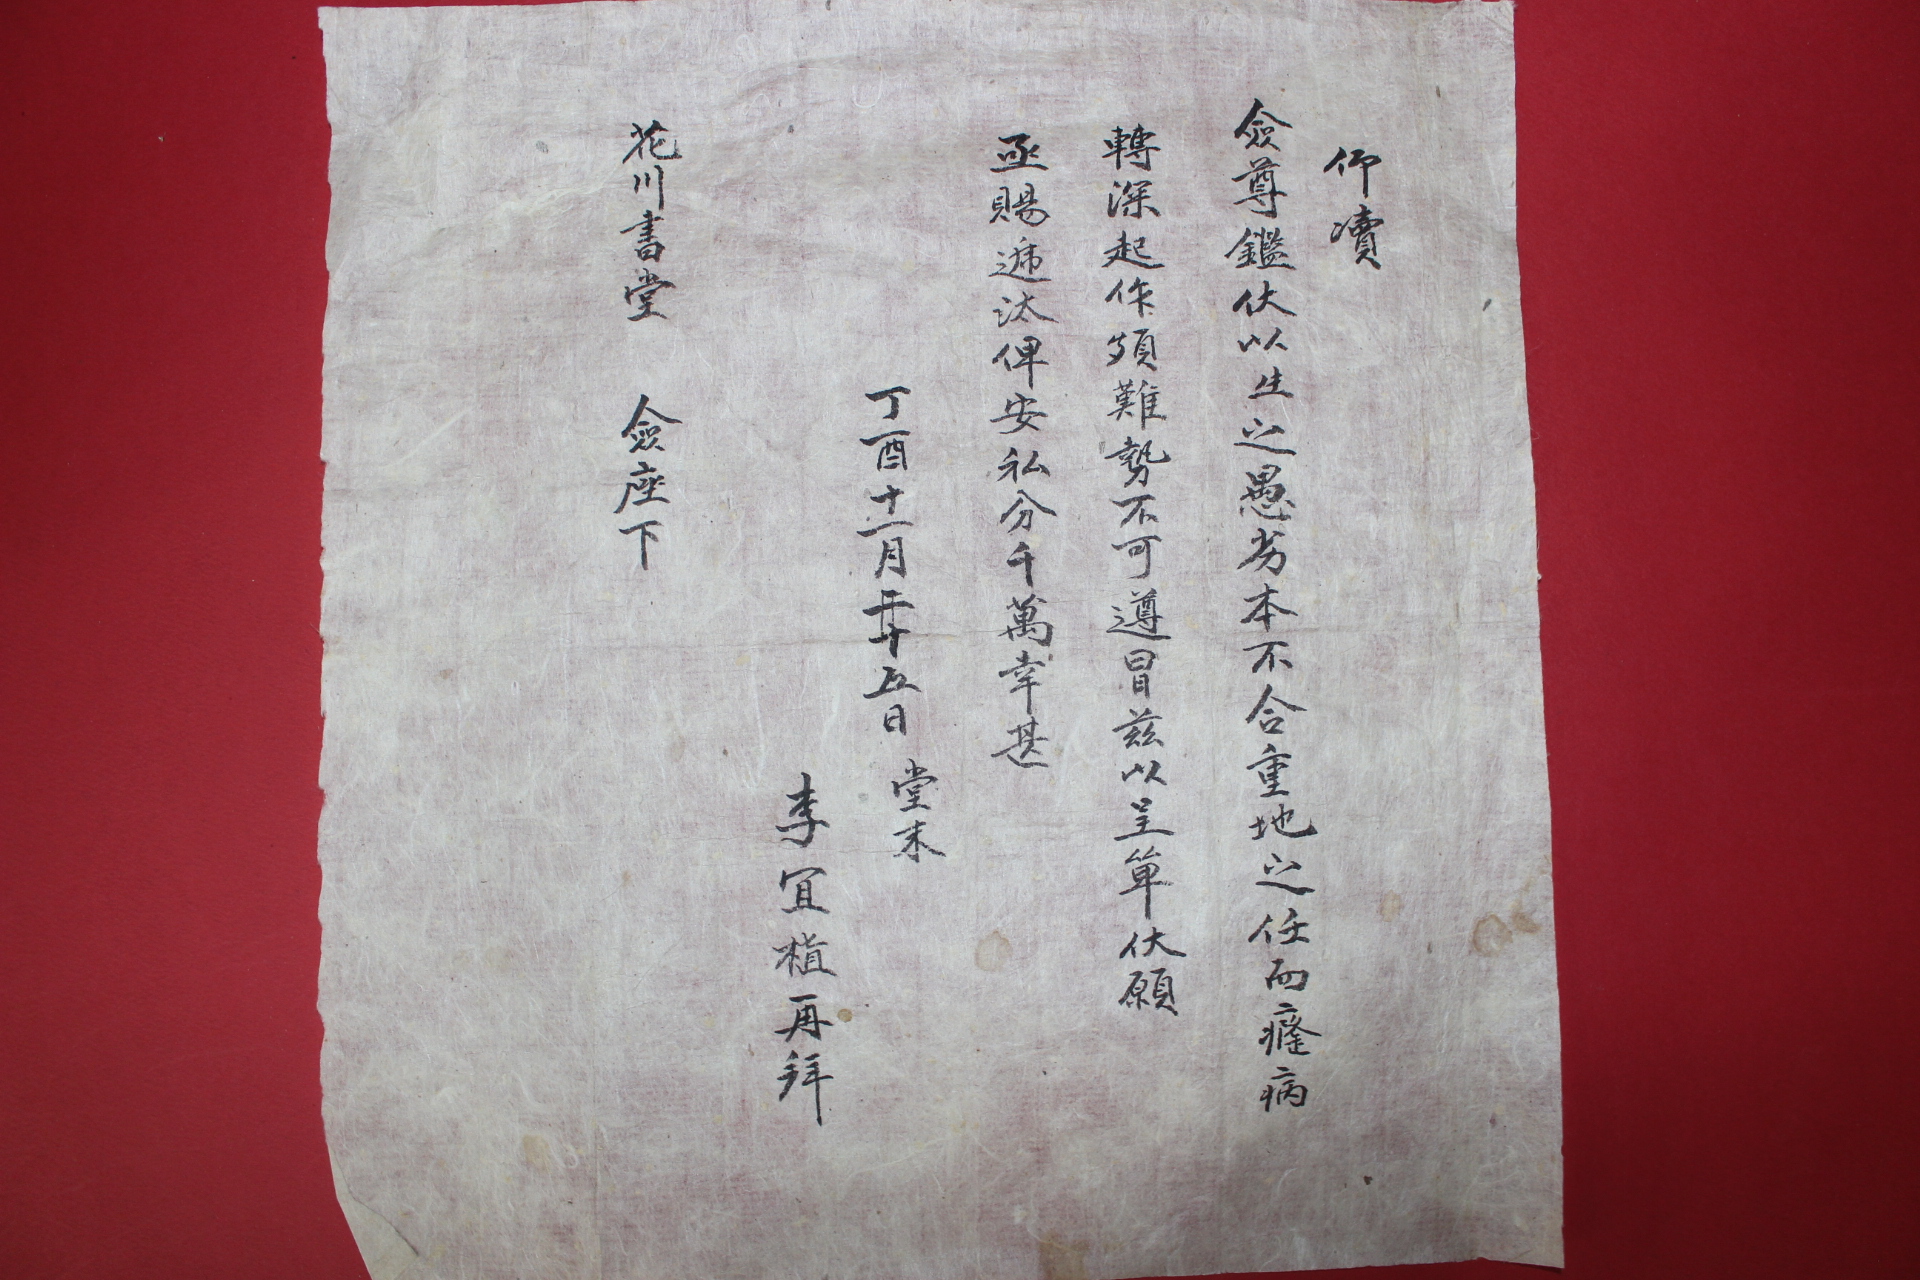 仰瀆
僉尊鑑伏以生之愚劣本不合重地之任而癃病
轉深起作頗難勢不可遵冒玆以呈單伏願
亟賜遞汰俾安私分千萬幸甚
丁酉十一月二十五日 堂末
李宜植再拜
花川書堂 僉座下